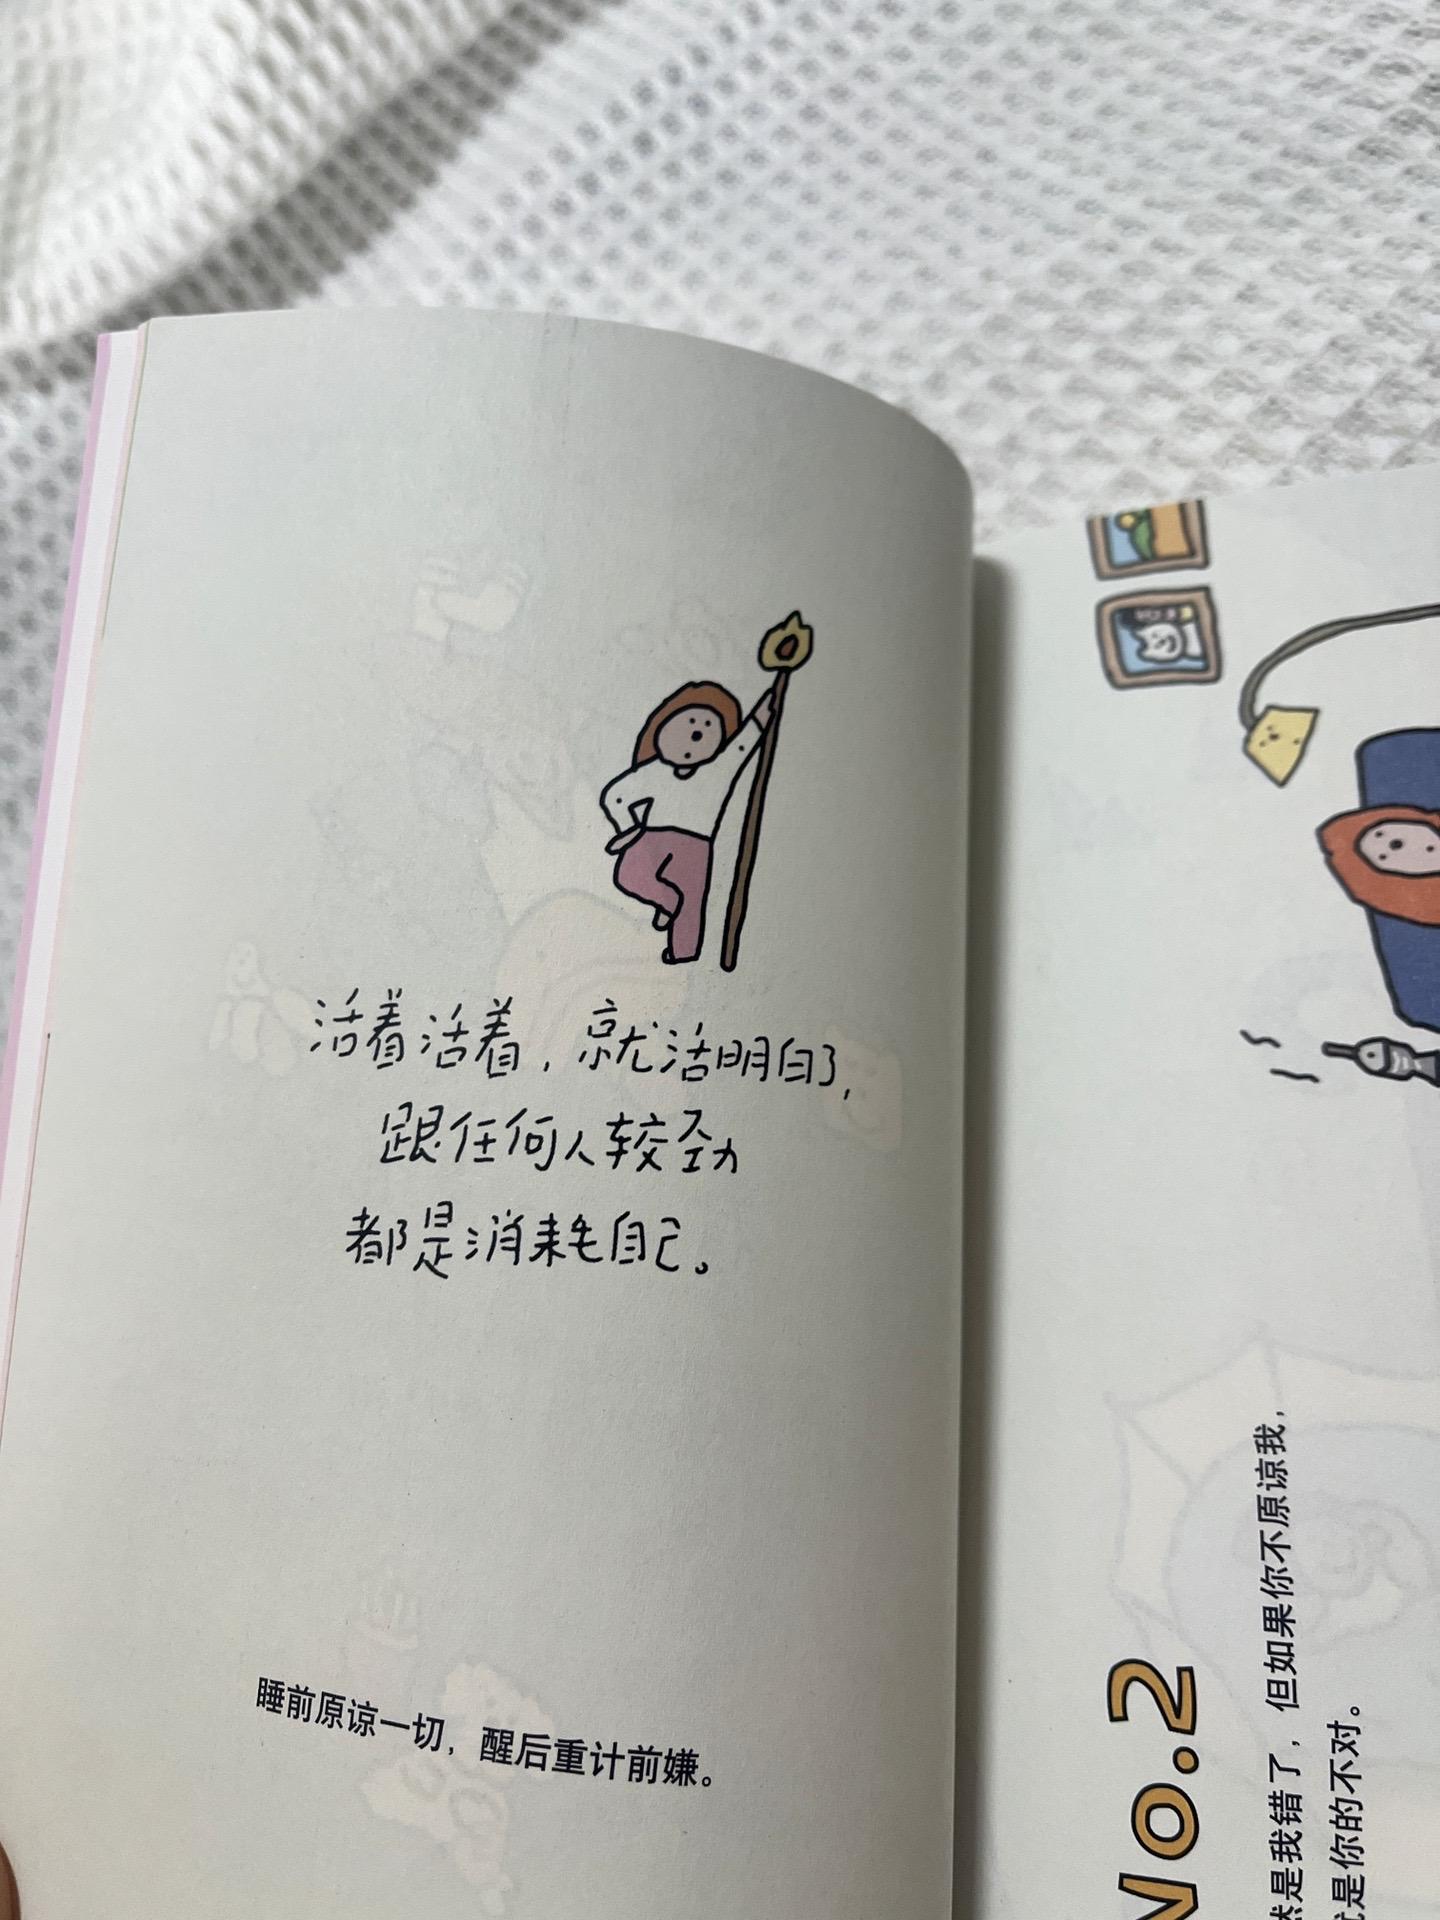 活着活着，就活明白了，
跟任何人较劲
都是消耗自己。
睡前原谅一切，醒后重计前嫌。
No.2
然是我错了，但如果你不原谅我，
是你的不对。